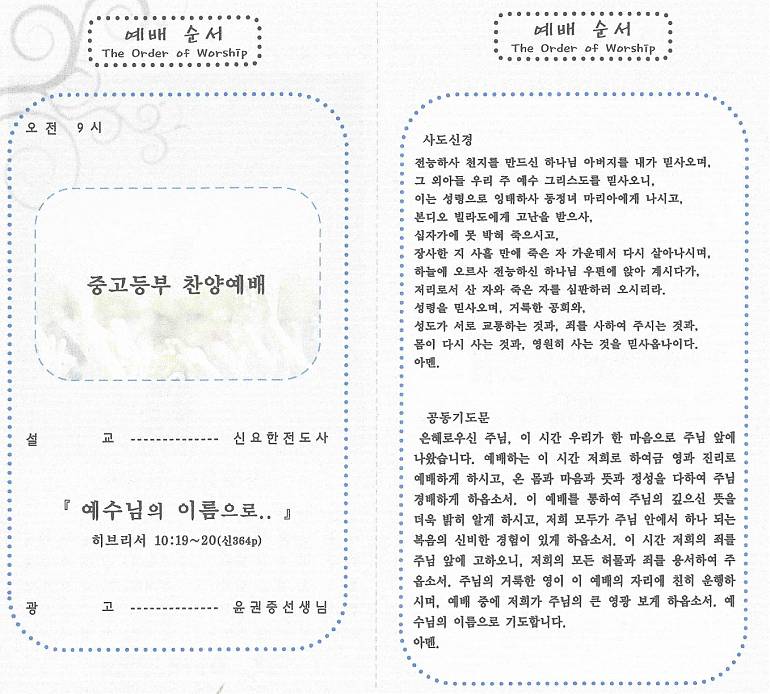 예배 순서
The Order of Worship
오전 9시
중고등부 찬양예배
설 교 -------------- 신요한전도사
『 예수님의 이름으로.. 』
히브리서 10:19~20(신364p)
광 고 -------------- 윤권중선생님
예배 순서
The Order of Worship
사도신경
전능하사 천지를 만드신 하나님 아버지를 내가 믿사오며,
그 외아들 우리 주 예수 그리스도를 믿사오니,
이는 성령으로 잉태하사 동정녀 마리아에게 나시고,
본디오 빌라도에게 고난을 받으사,
십자가에 못 박혀 죽으시고,
장사한 지 사흘 만에 죽은 자 가운데서 다시 살아나시며,
하늘에 오르사 전능하신 하나님 우편에 앉아 계시다가,
저리로서 산 자와 죽은 자를 심판하러 오시리라.
성령을 믿사오며, 거룩한 공회와,
성도가 서로 교통하는 것과, 죄를 사하여 주시는 것과,
몸이 다시 사는 것과, 영원히 사는 것을 믿사옵나이다.
아멘.
공동기도문
은혜로우신 주님, 이 시간 우리가 한 마음으로 주님 앞에
나왔습니다. 예배하는 이 시간 저희로 하여금 영과 진리로
예배하게 하시고, 온 몸과 마음과 뜻과 정성을 다하여 주님
경배하게 하옵소서. 이 예배를 통하여 주님의 깊으신 뜻을
더욱 밝히 알게 하시고, 저희 모두가 주님 안에서 하나 되는
복음의 신비한 경험이 있게 하옵소서. 이 시간 저희의 죄를
주님 앞에 고하오니, 저희의 모든 허물과 죄를 용서하여 주
옵소서. 주님의 거룩한 영이 이 예배의 자리에 친히 운행하
시며, 예배 중에 저희가 주님의 큰 영광 보게 하옵소서. 예
수님의 이름으로 기도합니다.
아멘.